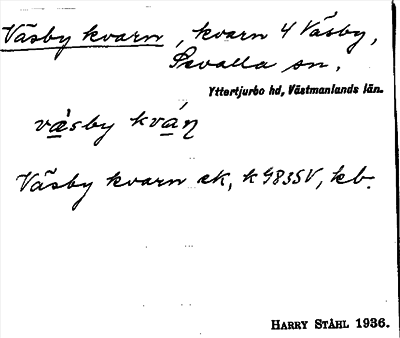 Väsby kvarn, kvarn 4 Väsby,
Svalla sn,
Yttertjurbo hd, Västmanlands län.
væ̀sby kváɳ
Väsby kvarn ek, k 983SV, kb.
HARRY STÅHL 1936.